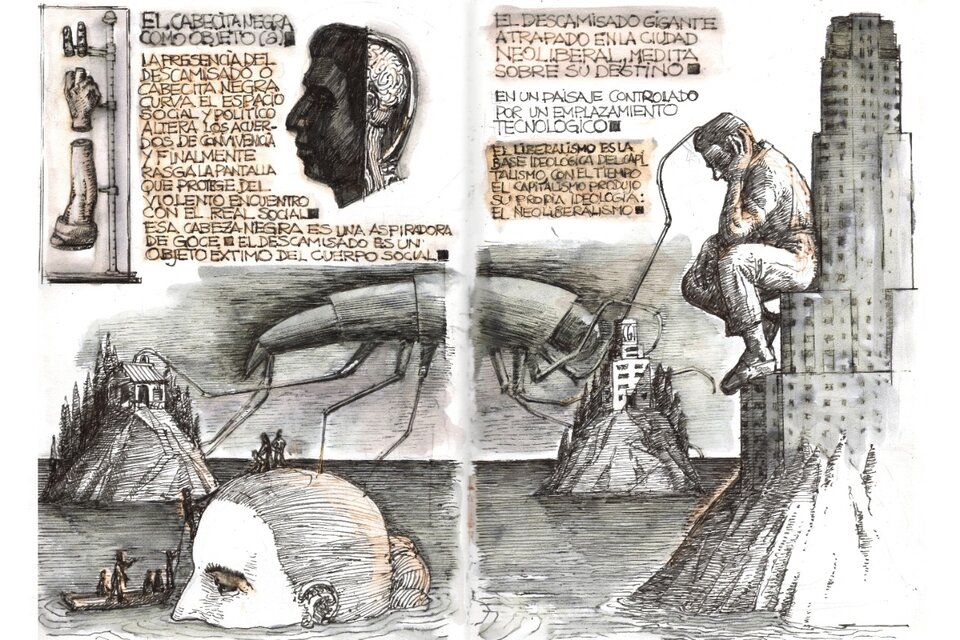 EL CABECITA NEGRA
COMO OBJETO (a)
LA PRESENCIA DEL
DESCAMISADO O
CABECITA NEGRA
CURVA EL ESPACIO
SOCIAL Y POLITICO
ALTERA LOS ACUER-
DOS DE CONVIVENCIA
Y FINALMENTE
RASGA LA PANTALLA
QUE PROTEGE DEL
VIOLENTO ENCUENTRO
CON EL REAL SOCIAL
ESA CABEZA NEGRA ES UNA ASPIRADORA
DE GOCE EL DESCAMISADO ES UN
OBJETO EXTIMO DEL CUERPO SOCIAL
EL DESCAMISADO GIGANTE
ATRAPADO EN LA CIUDAD
NEOLIBERAL, MEDITA
SOBRE SU DESTINO
EN UN PAISAJE CONTROLADO
POR UN EMPLAZAMIENTO
TECNOLÓGICO
EL LIBERALISMO ES LA
BASE IDEOLOGICA DEL CAPI
TALISMO, CON EL TIEMPO
EL CAPITALISMO PRODUJO
SU PROPIA IDEOLOGIA:
EL NEOLIBERALISMO